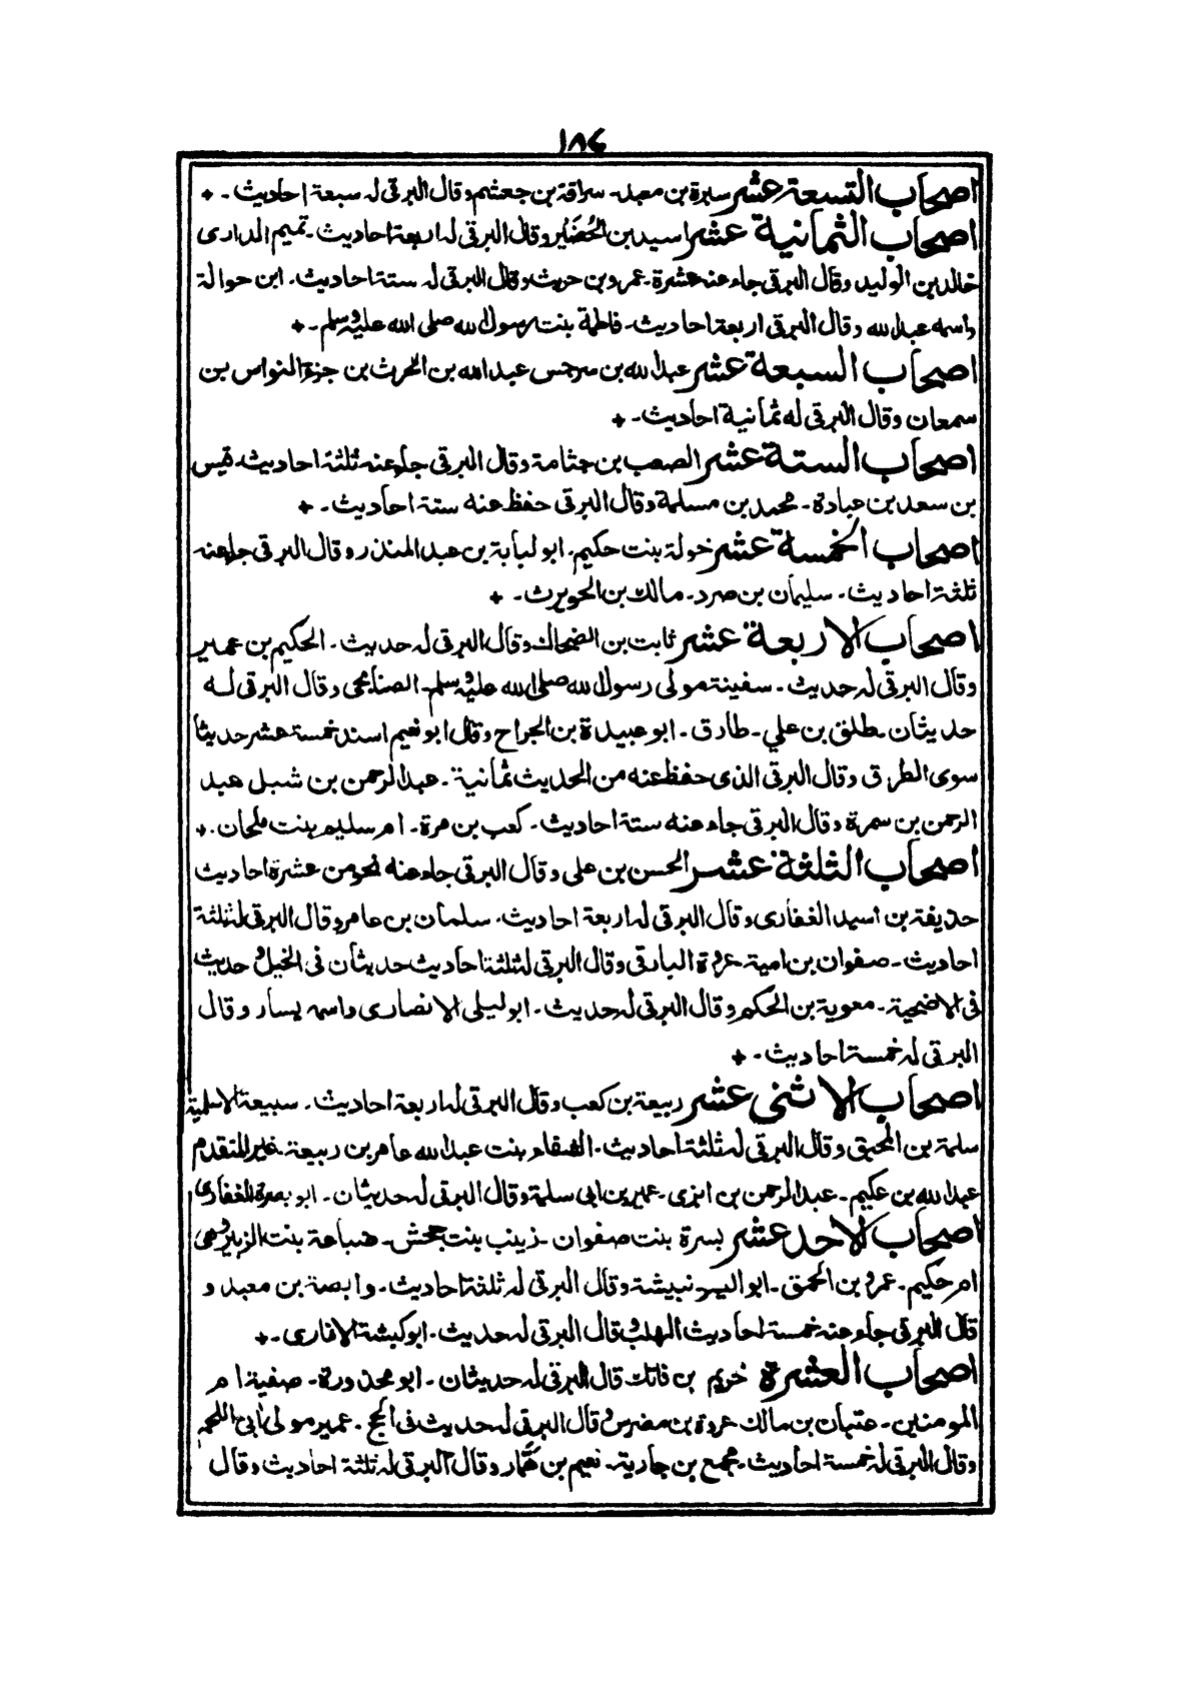 ١٨٦
اصحاب التسعة عشر سبرة بن معبد۔ سراقة بن جعشم وقال البرقی له سبعة احادیث۔ +
اصحاب الثمانیة عشر اسید بن الحُضَیر وقال البرقی له اربعة احادیث۔ تمیم الداری
خالد بن الولید وقال البرقی جاء عنه عشرة۔ عمرو بن حریث وقال البرقی له ستة احادیث۔ ابن حوالة
واسمه عبد الله وقال البرقی اربعة احادیث۔ فاطمة بنت رسول الله صلی الله علیه وسلم۔ +
اصحاب السبعة عشر عبد الله بن سرجس عبد الله بن الحرث بن جزء النواس بن
سمعان وقال البرقی له ثمانیة احادیث۔ +
اصحاب الستة عشر الصعب بن جثامة وقال البرقی جاء عنه ثلثة احادیث۔ قیس
بن سعد بن عبادة۔ محمد بن مسلمة وقال البرقی حفظ عنه ستة احادیث۔ +
اصحاب الخمسة عشر خولة بنت حکیم۔ ابو لبابة بن عبد المنذر وقال البرقی جاء عنه
ثلثة احادیث۔ سلیمان بن صرد۔ مالك بن الحویرث۔ +
اصحاب الاربعة عشر ثابت بن الضحاك وقال البرقی له حدیث۔ الحکیم بن عمیر
وقال البرقی له حدیث۔ سفینة مولی رسول الله صلی الله علیه وسلم۔ الصنابحی وقال البرقی له
حدیثان۔ طلق بن علي۔ طارق۔ ابو عبیدة بن الجراح وقال ابو نعیم اسند خمسة عشر حدیثا
سوی الطرق وقال البرقی الذی حفظ عنه من الحدیث ثمانیة۔ عبد الرحمن بن شبل عبد
الرحمن بن سمرة وقال البرقی جاء عنه ستة احادیث۔ کعب بن مرة۔ ام سلیم بنت ملحان۔ +
اصحاب الثلثة عشر الحسن بن علی وقال البرقی جاء عنه نحو من عشرة احادیث
حذیفة بن اسید الغفاری وقال البرقی له اربعة احادیث۔ سلمان بن عامر وقال البرقی له ثلثة
احادیث۔ صفوان بن امیة عروة البارقی وقال البرقی له ثلثة احادیث حدیثان فی الخیل و حدیث
فی الاضحیة۔ معویة بن الحکم وقال البرقی له حدیث۔ ابو لیلی الانصاری واسمه یسار وقال
البرقی له خمسة احادیث۔ +
اصحاب الاثنی عشر ربیعة بن کعب وقال البرقی له اربعة احادیث۔ سبیعة الاسلمیة
سلمة بن المحبق وقال البرقی له ثلثة احادیث۔ الشفاء بنت عبد الله عامر بن ربیعة غیر المتقدم
عبد الله بن عکیم۔ عبد الرحمن بن ابزی۔ عمیر بن ابی سلمة وقال البرقی له حدیثان۔ ابو بصرة الغفاری
اصحاب الاحد عشر بسرة بنت صفوان۔ زینب بنت جحش۔ ضباعة بنت الزبیر وهی
ام حکیم۔ عمرو بن الحمق۔ ابو الیسر نبیشة وقال البرقی له ثلثة احادیث۔ وابصة بن معبد و
قال البرقی جاء عنه خمسة احادیث الهلب وقال البرقی له حدیث۔ ابو کبشة الانماری۔ +
اصحاب العشرة خریم بن فاتك قال البرقی له حدیثان۔ ابو محذورة۔ صفیة ام
المومنین۔ عتبان بن مالك عروة بن مضرس وقال البرقی له حدیث فی الحج۔ عمیر مولی ابی اللحم
وقال البرقی له خمسة احادیث۔ مجمع بن جاریة۔ نعیم بن هَمَّار وقال البرقی له ثلثة احادیث وقال